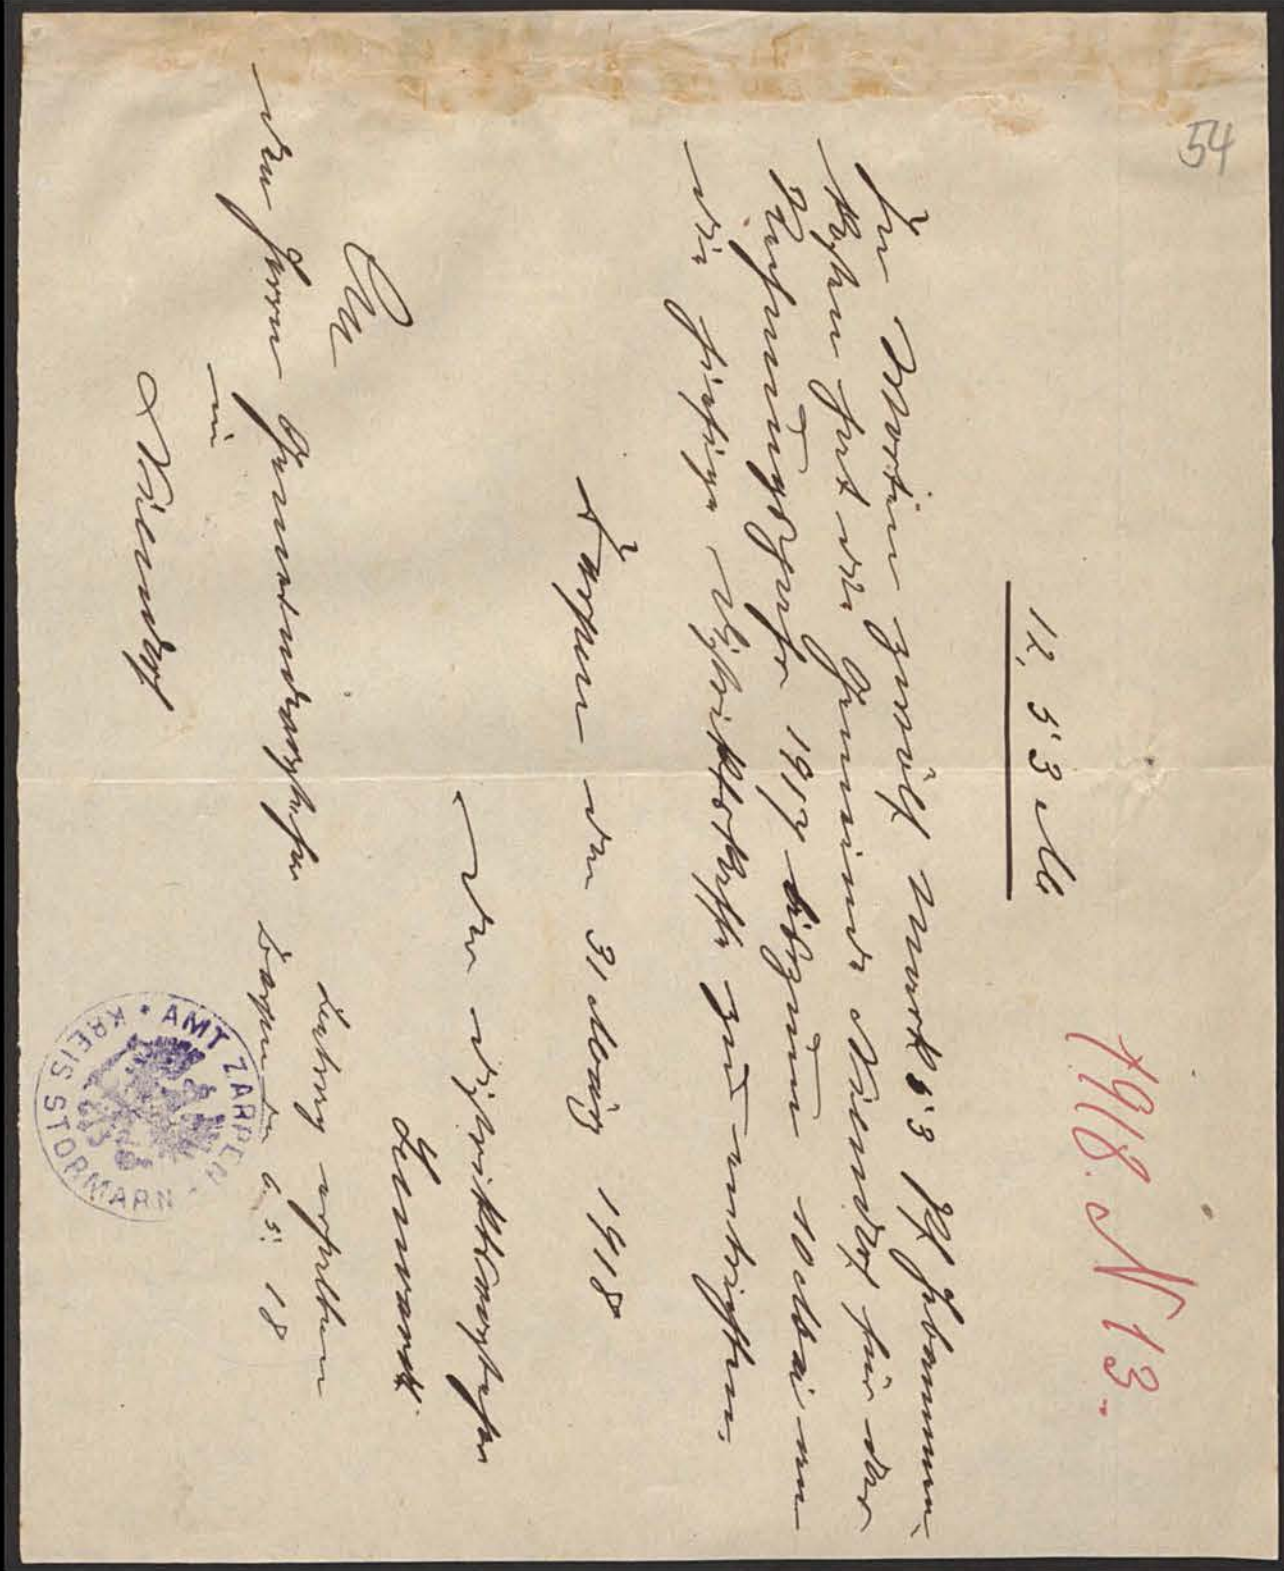 54
1918. N 13.
12,53 M
In Worten zwölf Mark 53 Pf Hebammen-
kosten hat die Gemeinde Niendorf für das
Rechnungsjahr 1917 bis zum 10 Mai an
die hiesige Distriktskasse zu entrichten.
Zarpen den 31 März 1918
Der Distriktsvorsteher
An
den Herrn Gemeindevorsteher
in
Niendorf
Betrag erhalten
Zarpen den 6. 5. 18
AMT ZARPEN
KREIS STORMARN